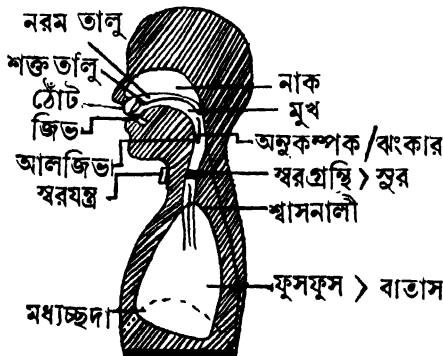 নরম তালু
শক্ত তালু
ঠোঁট
জিভ
আলজিভ
স্বরযন্ত্র
মধ্যচ্ছদা
নাক
মুখ
অনুকম্পক/ঝংকার
স্বরগ্রন্থি > সুর
শ্বাসনালী
ফুসফুস > বাতাস